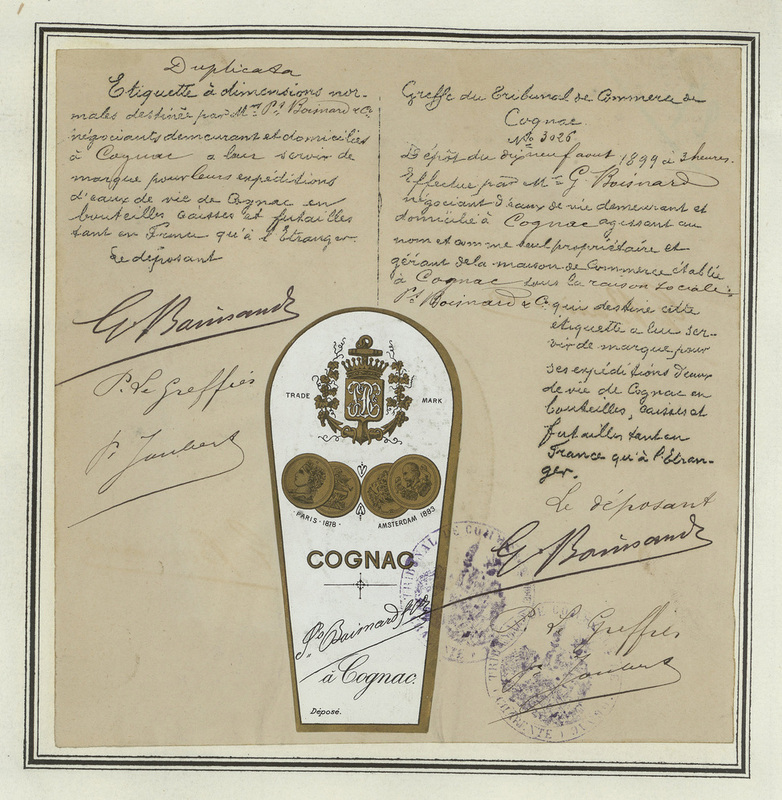 Duplicata
Etiquette à dimensions nor-
males destinée par Mrs Ps Boisnard & Co
négociants demeurant et domiciliés
à Cognac a leur servir de
marque pour leurs expéditions
d'eaux de vie de Cognac en
bouteilles caisses et futailles
tant en France qu'à l'Etranger.
Le déposant
G. Boisnard
P. Le Greffier
P. Joubert
Greffe du Tribunal de Commerce de
Cognac
No 3026
Dépôt du dix neuf aout 1899 à 3 heures.
Effectué par Mr G. Boisnard
négociant d'eaux de vie demeurant et
domicilié à Cognac agissant au
nom et comme seul propriétaire et
gérant de la maison de Commerce établie
à Cognac sous la raison sociale:
Ps Boisnard & Co qui destine cette
etiquette a lui ser-
vir de marque pour
ses expéditions d'eaux
de vie de Cognac en
bouteilles, caisses et
futailles tant en
France qu'à l'Etran-
ger.
Le déposant
G. Boisnard
P. Le Greffier
Joubert
TRADE MARK
PARIS - 1878 - AMSTERDAM 1883
COGNAC
Ps Boisnard & Co
à Cognac.
Déposé.
TRIBUNAL DE COMM
CHARENTE
TRIBUNAL DE COM
CHARENTE